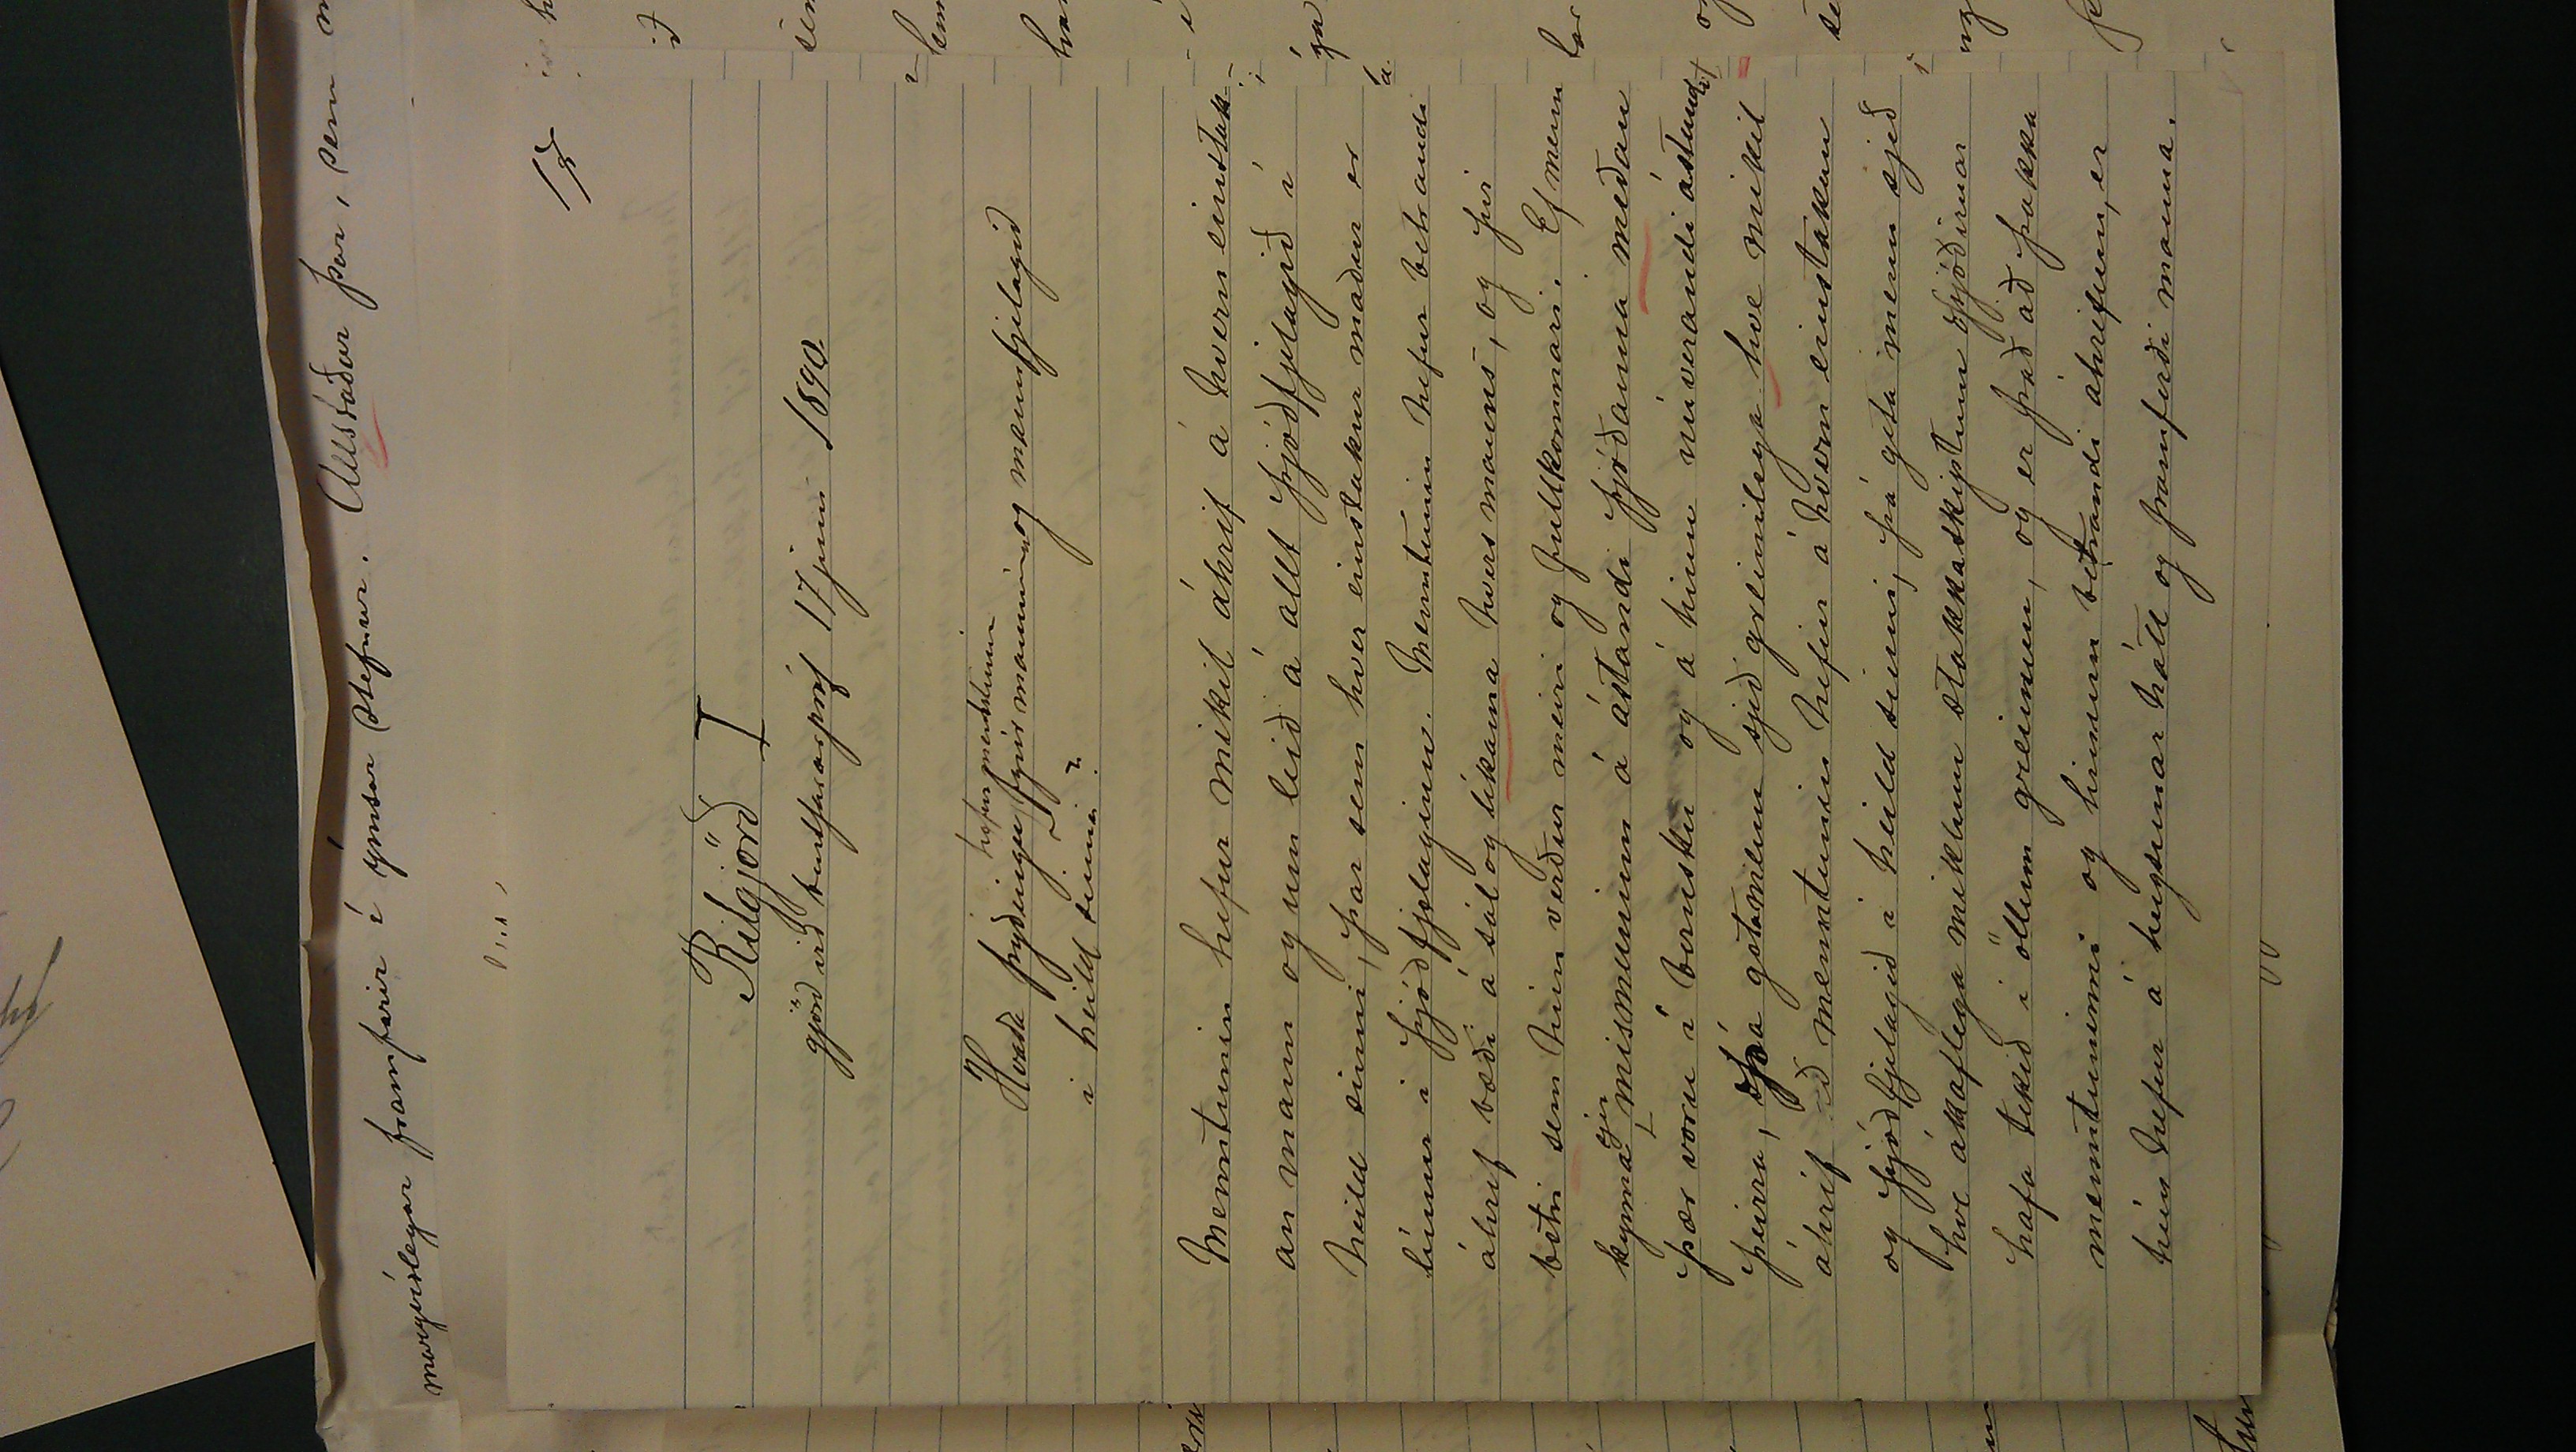 margvíslegar framfarir í ýmsar stefnur. Allsstaðar þar, sem
15
Ritgjörð I
gjörð við burtfararpróf 17 júní 1890
hefur menntunin
Hvaða þýðingu fyrir manninn og mannfjelagið
í heild sinni?
Menntunin hefur mikil áhrif á hvern einstak-
an mann og um leið á allt þjóðfjelagið í
heild sinni, þar sem hver einstakur maður er
limur í þjóðfjelaginu. Menntunin hefur betrandi
áhrif bæði á sál og líkama hvers manns, og því
betri sem hún verður meiri og fullkomnari. Ef menn
kynna sjer mismuninn á ástandi þjóðanna meðan
þær voru í bernsku og á hinu núverandi ástandi
þeirra, þá geta menn sjeð greinilega hve mikil
áhrif menntunin hefur á hvern einstakan
og þjóðfjelagið í heild sinni, þá geta menn sjeð
hve ákaflega miklum stakkaskiptum þjóðirnar
hafa tekið í öllum greinum, og er það að þakka
menntuninni og hinum betrandi áhrifum, er
hún hefur á hugsunarhátt og framferði manna.